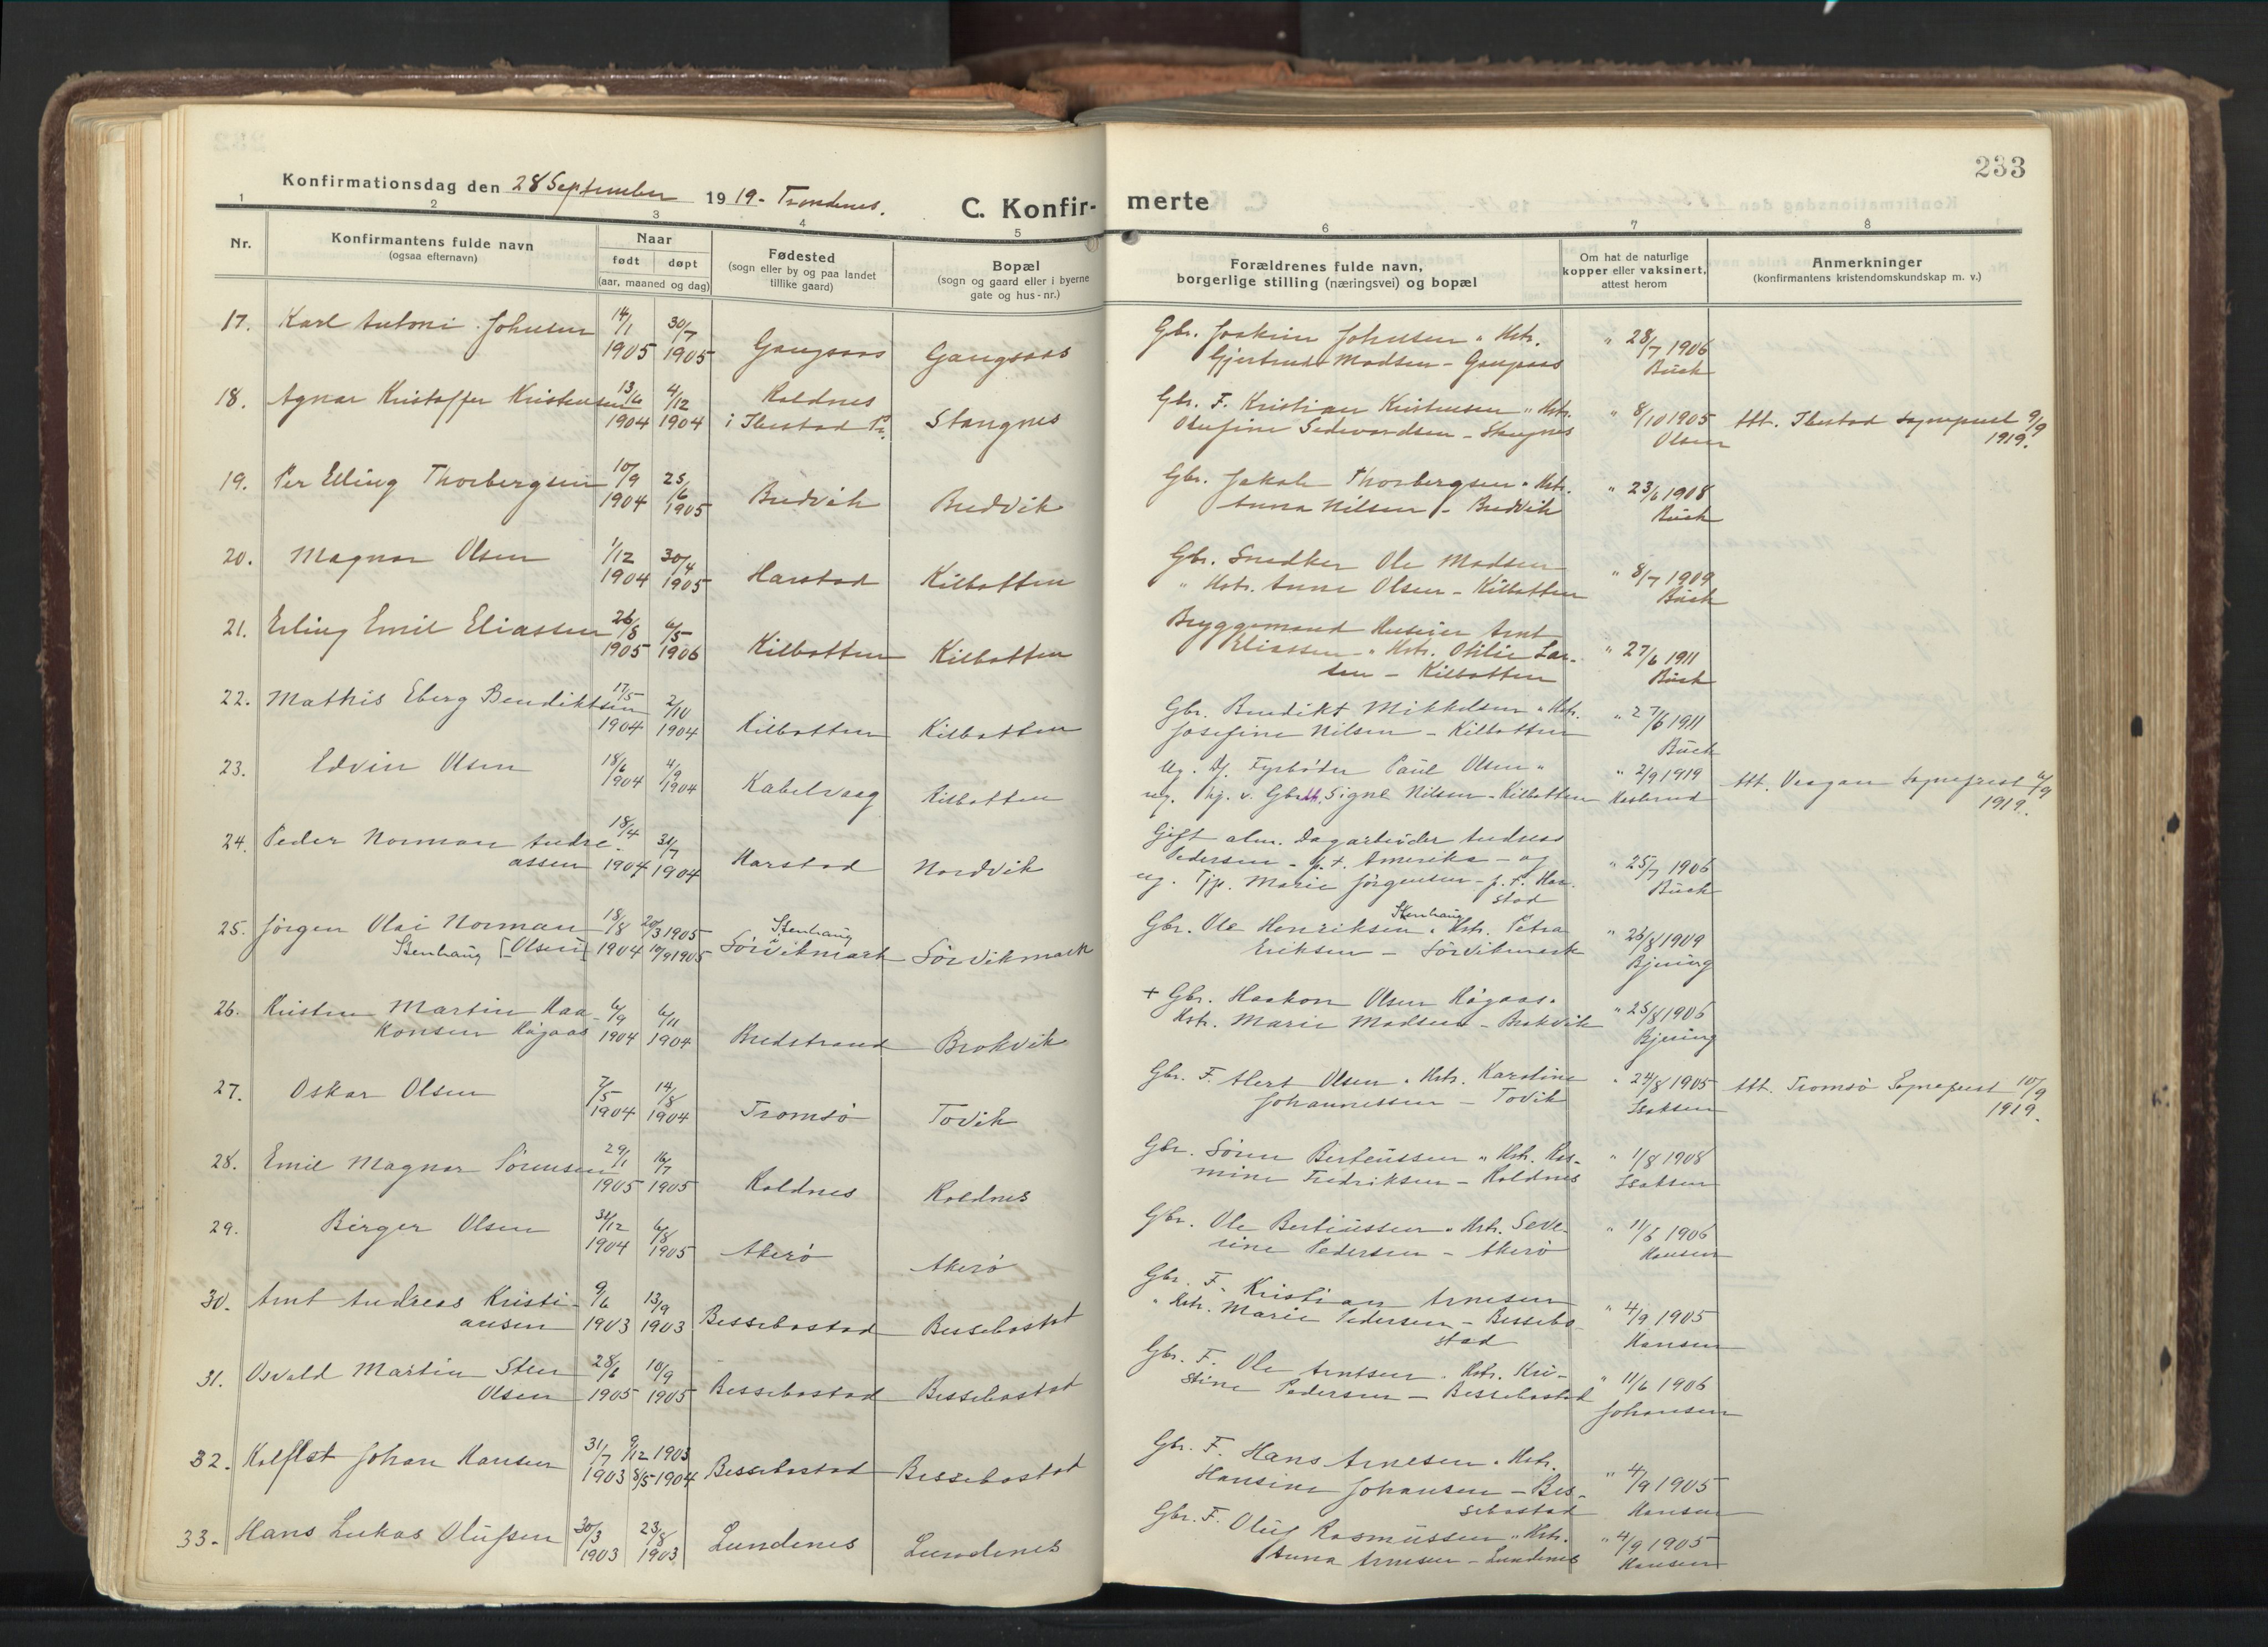 233
Konfirmationsdag den 28 September 1919 - Trondenes.
C. Konfir-
merte
1 2 3 4 5 6 7 8
Nr.
Konfirmantens fulde navn
(ogsaa efternavn)
Naar
født døpt
(aar, maaned og dag)
Fødested
(sogn eller by og paa landet
tillike gaard)
Bopæl
(sogn og gaard eller i byerne
gate og hus-nr.)
Forældrenes fulde navn,
borgerlige stilling (næringsvei) og bopæl
Om hat de naturlige
kopper eller vaksinert,
attest herom
Anmerkninger
(konfirmantens kristendomskundskap m. v.)
17. Karl Antoni Johnsen 14/1 1905 30/7 1905 Gangsaas Gangsaas
Gbr. Joakim Johnsen " Hstr.
Gjertrud Madsen - Gangsaas
" 28/7 1906
Buck
18. Agnar Kristoffer Kristensen 13/6 1904 4/12 1904 Roldnes
i Ibestad Pr. Stangnes
Gbr. F. Kristian Kristensen " Hstr.
Olufine Sedevardsen - Stangnes
" 8/10 1905
Olsen
Att. Ibestad Sogneprest 9/9
1919.
19. Per Elling Thorbergsen 10/9 1904 25/6 1905 Bredvik Bredvik
Gbr. Jakob Thorbergsen " Hstr.
Anna Nilsen - Bredvik
" 23/6 1908
Buck
20. Magnar Olsen 1/12 1904 30/4 1905 Harstad Kilbotten
Gbr. Snedker Ole Madsen
" Hstr. Anne Olsen - Kilbotten
" 8/7 1909
Buck
21. Erling Emil Eliassen 26/8 1905 6/5 1906 Kilbotten Kilbotten
Bryggemand Huseier Arnt
Eliassen - " Hstr. Otilie Lar-
sen - Kilbotten
" 27/6 1911
Buck
22. Mathis Eberg Bendiktsen 17/5 1904 2/10 1904 Kilbotten Kilbotten
Gbr. Benedikt Mikkelsen " Hstr.
Josefine Nilsen - Kilbotten
" 27/6 1911
Buck
23. Edvin Olsen 18/6 1904 4/9 1904 Kabelvaag Kilbotten
Ug. Fyrbøder Paul Olsen "
ug. Signe Nilsen - Kilbotten
" 2/9 1919
Att. Vaagan Sogneprest 6/9
1919.
24. Peder Norman Andre-
assen 18/4 1904 31/7 1904 Harstad Nordvik
Gift alm. Dagarbeider Andreas
Pedersen - p.t. Amerika - og
ug. Tjp. Marie Jørgensen - p.t. Har-
stad
" 25/7 1906
Buck
25. Jørgen Olai Norman
Stenhaug [Olsen] 18/8 1904 20/3 1905
10/9 1905 Stenhaug
Sørvikmark Sørvikmark
Gbr. Ole Henriksen Stenhaug " Hstr. Petra
Eriksen - Sørvikmark
" 26/8 1909
Bjering
26. Kristen Martin Haa-
konsen Høgaas 6/9 1904 6/11 1904 Bredstrand Brokvik
+ Gbr. Haakon Olsen Høgaas.
Hstr. Marie Madsen - Brokvik
" 25/8 1906
Bjering
27. Oskar Olsen 7/5 1904 14/8 1904 Tromsø Tovik
Gbr. F. Albert Olsen " Hstr. Karoline
Johannessen - Tovik
" 24/8 1905
Isaksen
Att. Tromsø Sogneprest 10/9
1919.
28. Emil Magnar Sørensen 29/1 1905 16/7 1905 Roldnes Roldnes
Gbr. Søren Berteussen " Hstr. Ras-
mine Fredriksen - Roldnes
" 1/8 1908
Isaksen
29. Birger Olsen 31/12 1904 6/8 1905 Akerø Akerø
Gbr. Ole Bertiussen " Hstr. Seve-
rine Pedersen - Akerø
" 11/6 1906
Hansen
30. Arnt Andreas Kristi-
ansen 9/6 1903 13/9 1903 Bessebostad Bessebostad
Gbr. F. Kristian Arnesen
" Hstr. Marie Pedersen - Bessebo-
stad
" 4/9 1905
Hansen
31. Osvald Martin Sten
Olsen 28/6 1905 10/9 1905 Bessebostad Bessebostad
Gbr. F. Ole Arntsen " Hstr. Kri-
stine Pedersen - Bessebostad
" 11/6 1906
Johansen
32. Johan Hansen 31/7 1903 9/12 1903
8/5 1904 Bessebostad Bessebostad
Gbr. F. Hans Arnesen " Hstr.
Hansine Johansen - Bes-
sebostad
" 4/9 1905
Hansen
33. Hans Lukas Olufsen 30/3 1903 23/8 1903 Lundenes Lundenes
Gbr. F. Oluf Rasmussen " Hstr.
Anna Arnesen - Lundenes
" 4/9 1905
Hansen